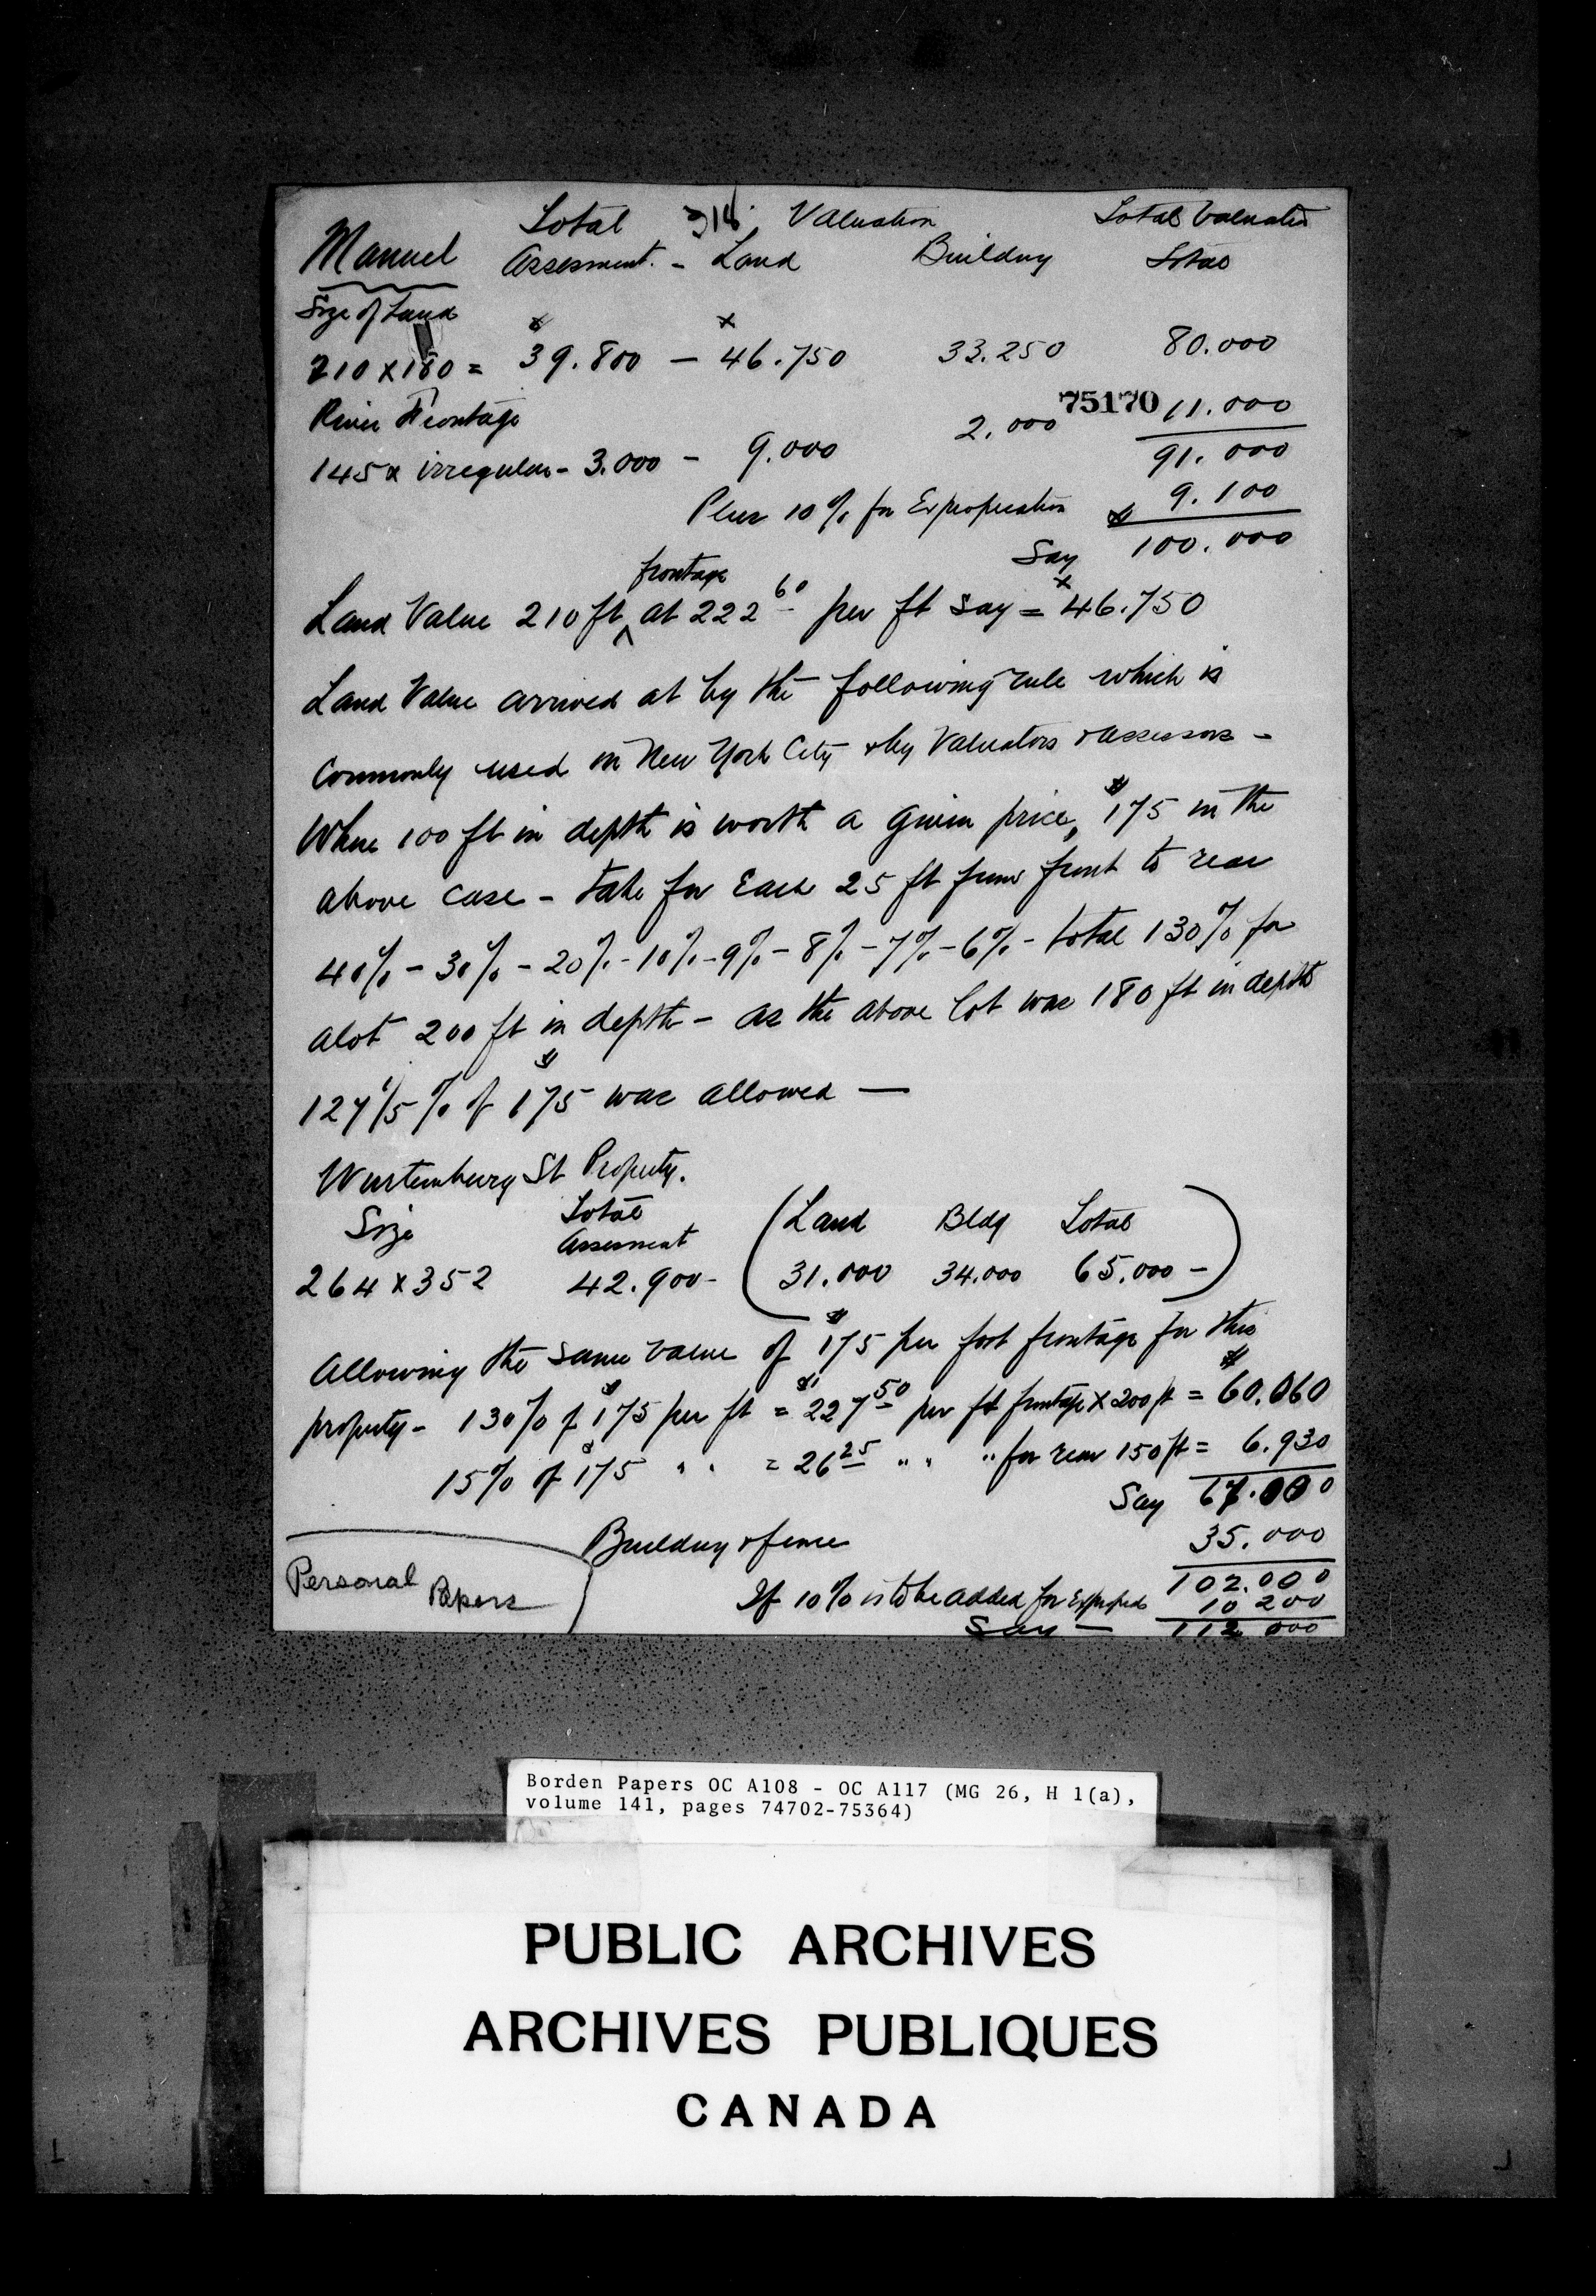 Total 314 Valuation Total Valuation
Manuel Assesment. - Land Building Total
Size of Land
210 x 180 = $39.800 - $46.750 33.250 80.000
River Frontage 75170 11.000
145 x irregular - 3.000 - 9.000 2.000 91.000
Plus 10% for Expropriation $ 9.100
Say 100.000
frontage
Land Value 210 ft ^ at 222 60 per ft say = $46.750
Land Value arrived at by the following rule which is
Commonly used in New York City & by Valuators & assessors -
Where 100 ft in depth is worth a given price, $175 in the
above case - take for Each 25 ft from front to rear
40% - 30% - 20% - 10% - 9% - 8% - 7% - 6% - total 130% for
a lot 200 ft in depth - as the above lot was 180 ft in depth
127 1/5 % of $175 was allowed —
Wurtemburg St Property.
Size Total Assesment (Land Bldg Total
264 x 352 42.900 - 31.000 34.000 65.000 -)
Allowing the same value of $175 per foot frontage for this
property - 130% of $175 per ft = $227 50 per ft frontage x 200 ft = $60.060
15% of $175 " " = 26 25 " " " for rear 150 ft = 6.930
Say 67.000
Building & fence 35.000
102.000
Personal Papers
If 10% is to be added for Expropr 10 200
Say — 112 000
Borden Papers OC A108 - OC A117 (MG 26, H 1(a),
volume 141, pages 74702-75364)
PUBLIC ARCHIVES
ARCHIVES PUBLIQUES
CANADA